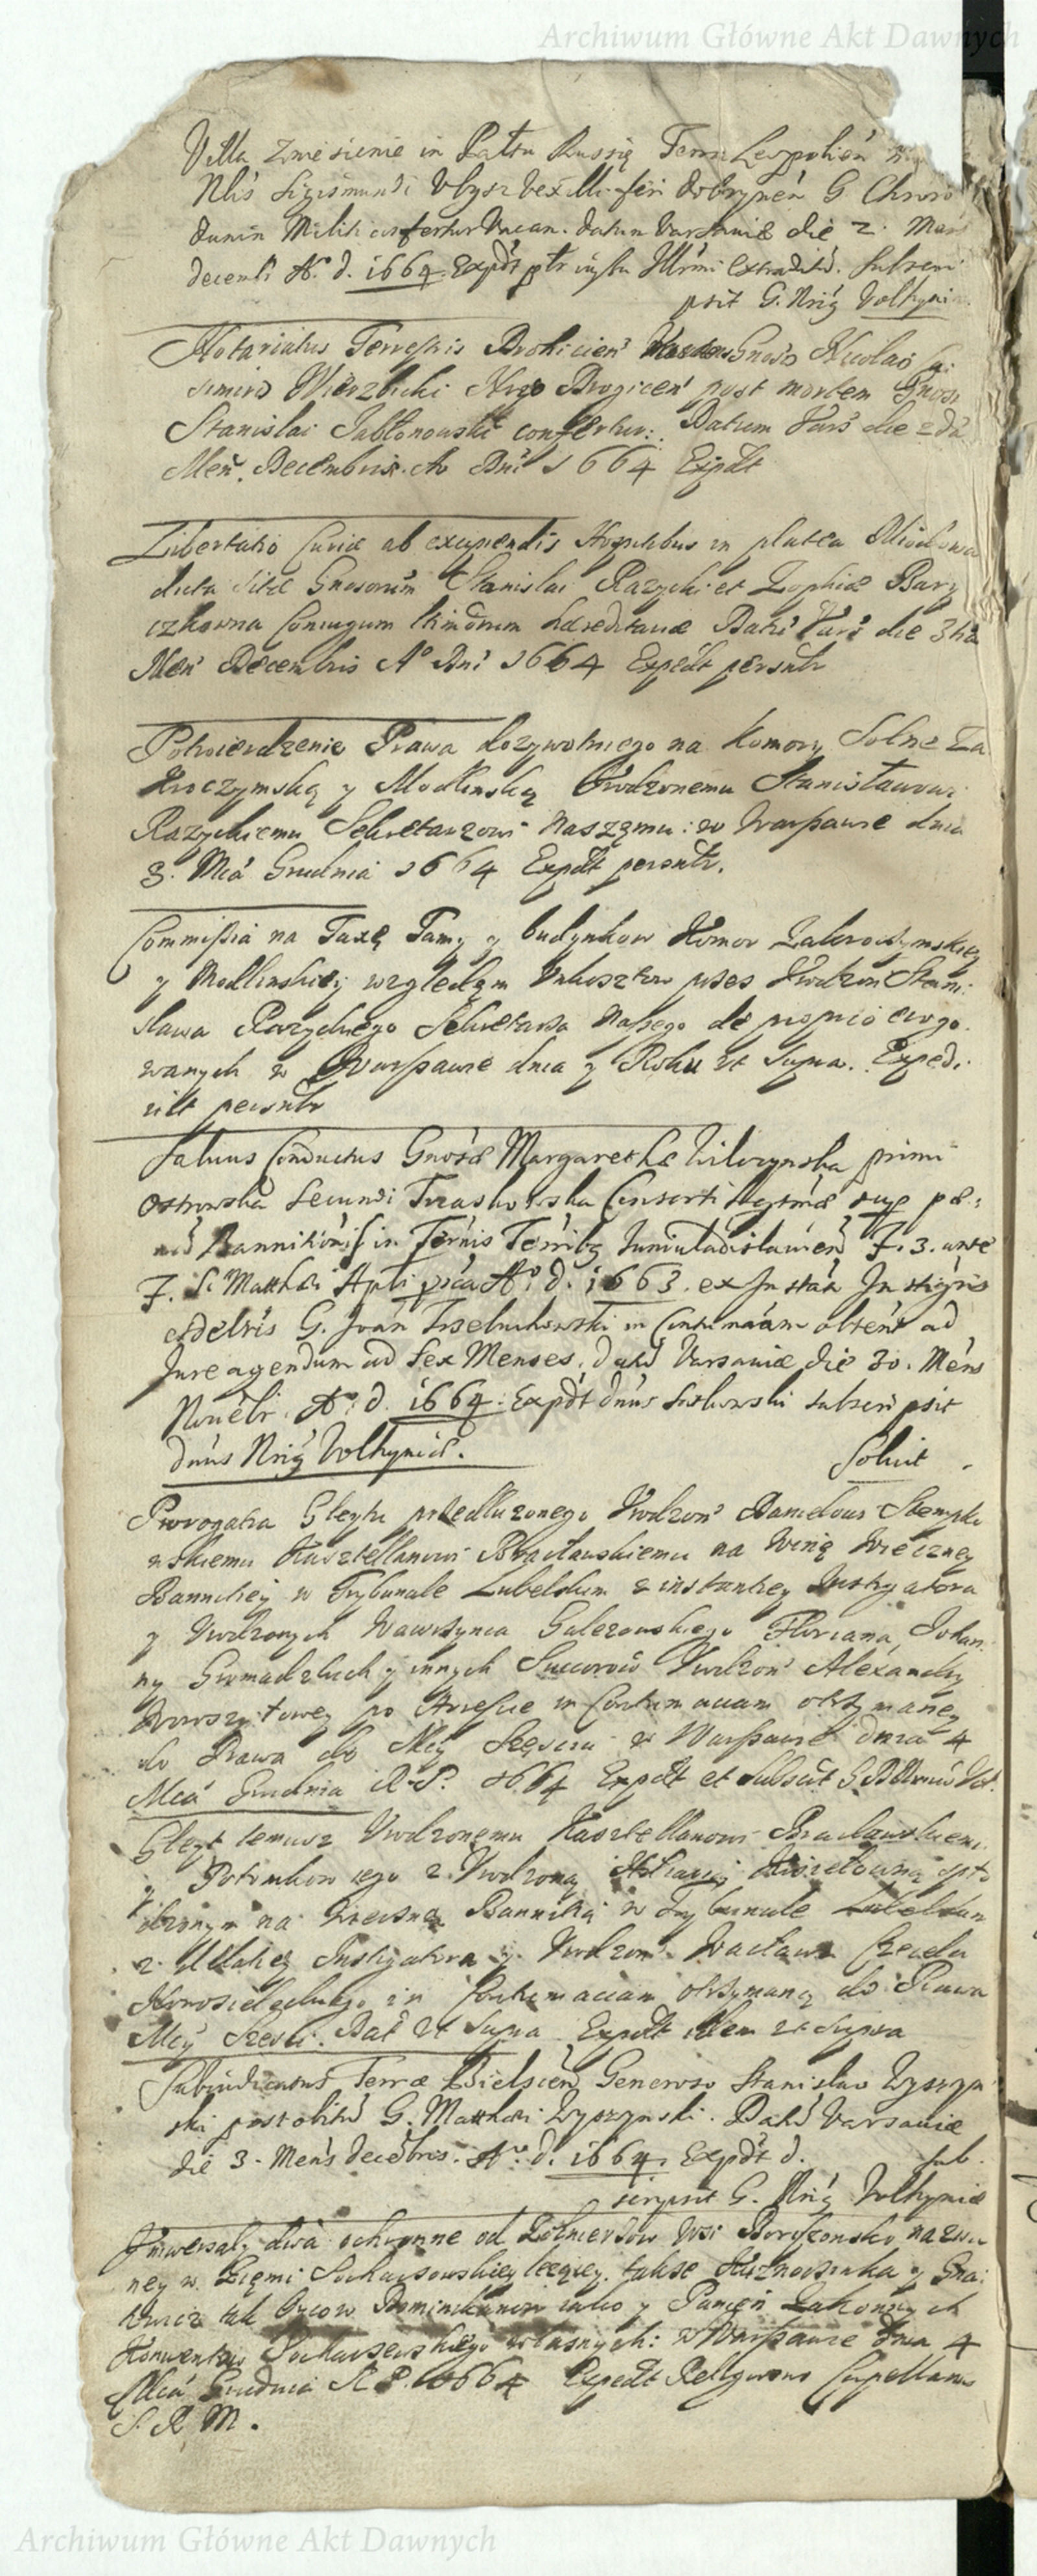 Archiwum Główne Akt Dawnych
Villa Zniesienie in Pałtu Russię Terra Leopolień
Nlis Sigismundi Ubysz Vexilliferi dobrynen G. Chrisos
dunin Militi confertur Vacan. datum Varsaviæ die 2. Mens
decemb. Aº. d. 1664. Expdt ptr Illrmi extradit. Subscri
psit G. Nrig Volhyniæ.
Notariatus Terrestris Drohicien Gnoso Nicolao Ca
simiro Wierzbicki Nrgo Drogicen post mortem Gnosi
Stanislai Jabłonowski confertur: Datum Vars die 2da
Men. Decembris. Ao Dni 1664 Expdt
Libertatio Curiæ ab excipiendis Hospitibus in platea Miodowa
dicta sitæ Gnosorum Stanislai Razycki et Zophiæ Bary
czkowna Coniugum hæreditariæ Dat Vars die 3tia
Men Decembris Aº Dni 1664 Expedt persntr
Potwierdzenie Prawa dozywotniego na Komory Solne Za
kroczymską y Modlinską Urodzonemu Stanisławowi
Razyckiemu Sekretarzowi Naszęmu: w Warszawie dnia
3. Mca Grudnia 1664 Expdt persntr.
Commissia na Taxę Tamy y budynkow Komor Zakroczymskiey
y Modlinskiey względem kosztow przes Urodzon Stani:
sława Razyckiego Sekretarza Naszego de proprio erogo
wanych w Warszawie dnia y Roku ut Supra. Expedi
vit persntr
Salvus Conductus Gnosæ Margarethæ Wilczynska primi
Ostrowska Secundi Traskowska Consorti sup pæ:
na Bannitionis in Ternis Territ. Juniuladislavien F. 3. ante
F. S. Matthæi Apti pxa Aº. d. 1663. ex Instan Instigris
et delris G. Joan in Contumatiam obten ad
Jure agendum ad Sex Menses. Dat Varsaviæ die 30. Mens
Novebr. Aº. d. 1664. Expdt dnus Sosłowski subscripsit
dnus Nrig Volhyniæ. Solvit
Prorogatia Gleytu przedłuzonego Urodzon Danielowi Stempko
wskiemu Kasztellanowi Bracławskiemu na Winę Wieczney
Bannitiey w Trybunale Lubelskim z instantiey Instigatora
y Urodzonych Wawrzynca Galezowskiego Floriana, Johan
ny Gromadzkich y innych Succorow Urodzon Alexandry
po Areście in Contumaciam otrzymaney
do Prawa do Mcy Szęsciu w Warszawie dnia 4
Mca Grudnia R. P. 1664 Expdt et Subscrit
Gleyt temusz Urodzonemu Kasztellanowi Bracławskiemu
y Potomkom iego z Urodzoną Kisielowną spło
dzonym na Wieczną Bannitią w Trybunale Lubelskim
z Instigatora y Urodzon Wacława
in Contumaciam otrzymaną do Prawa
Mcy Sześci. Dat ut Supra Expdt idem ut Supra
Subiudicatus Terræ Bielscen Generoso Stanislao Wyszyn
ski post obitu G. Matthæi Wyszynski. Dat Varsaviæ
die 3. Mens decebris. Aº. d. 1664. Expdt d. sub.
scripsit G. Nrig Volhyniæ
Uniwersały dwa ochronne od Zołnierzow Wsi nazwa
ney w Ziemi Sochaczowskiey lezącey, także y
tak Oycow Dominikanow iako y Panien Zakonnych
Konwentow Sochaczewskiego własnych: w Warszawie dnia 4
Mca Grudnia R. P. 1664 Expedt Religiosus Capellanus
S. R. M.
Archiwum Główne Akt Dawnych